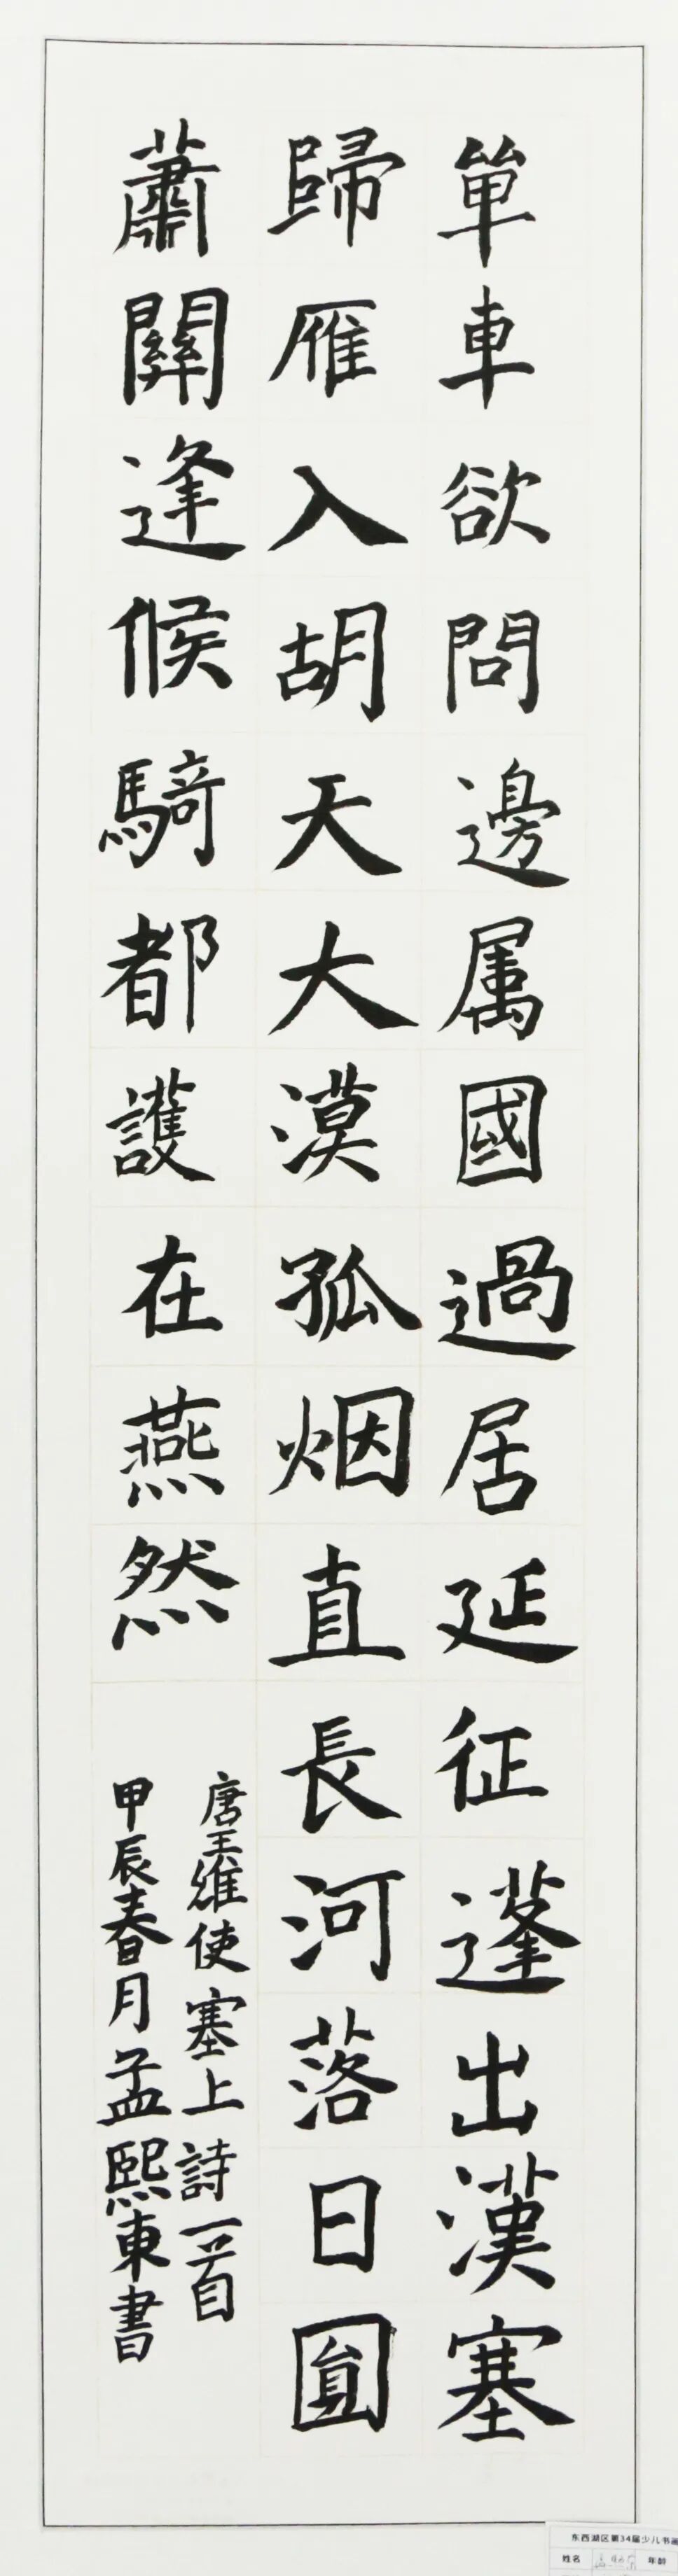 單車欲問邊属國過居延征蓬出漢塞
歸雁入胡天大漠孤烟直長河落日圓
蕭關逢候騎都護在燕然
唐王維使塞上詩一首
甲辰春月孟熙東書
东西湖区第34届少儿书画
姓名 年龄